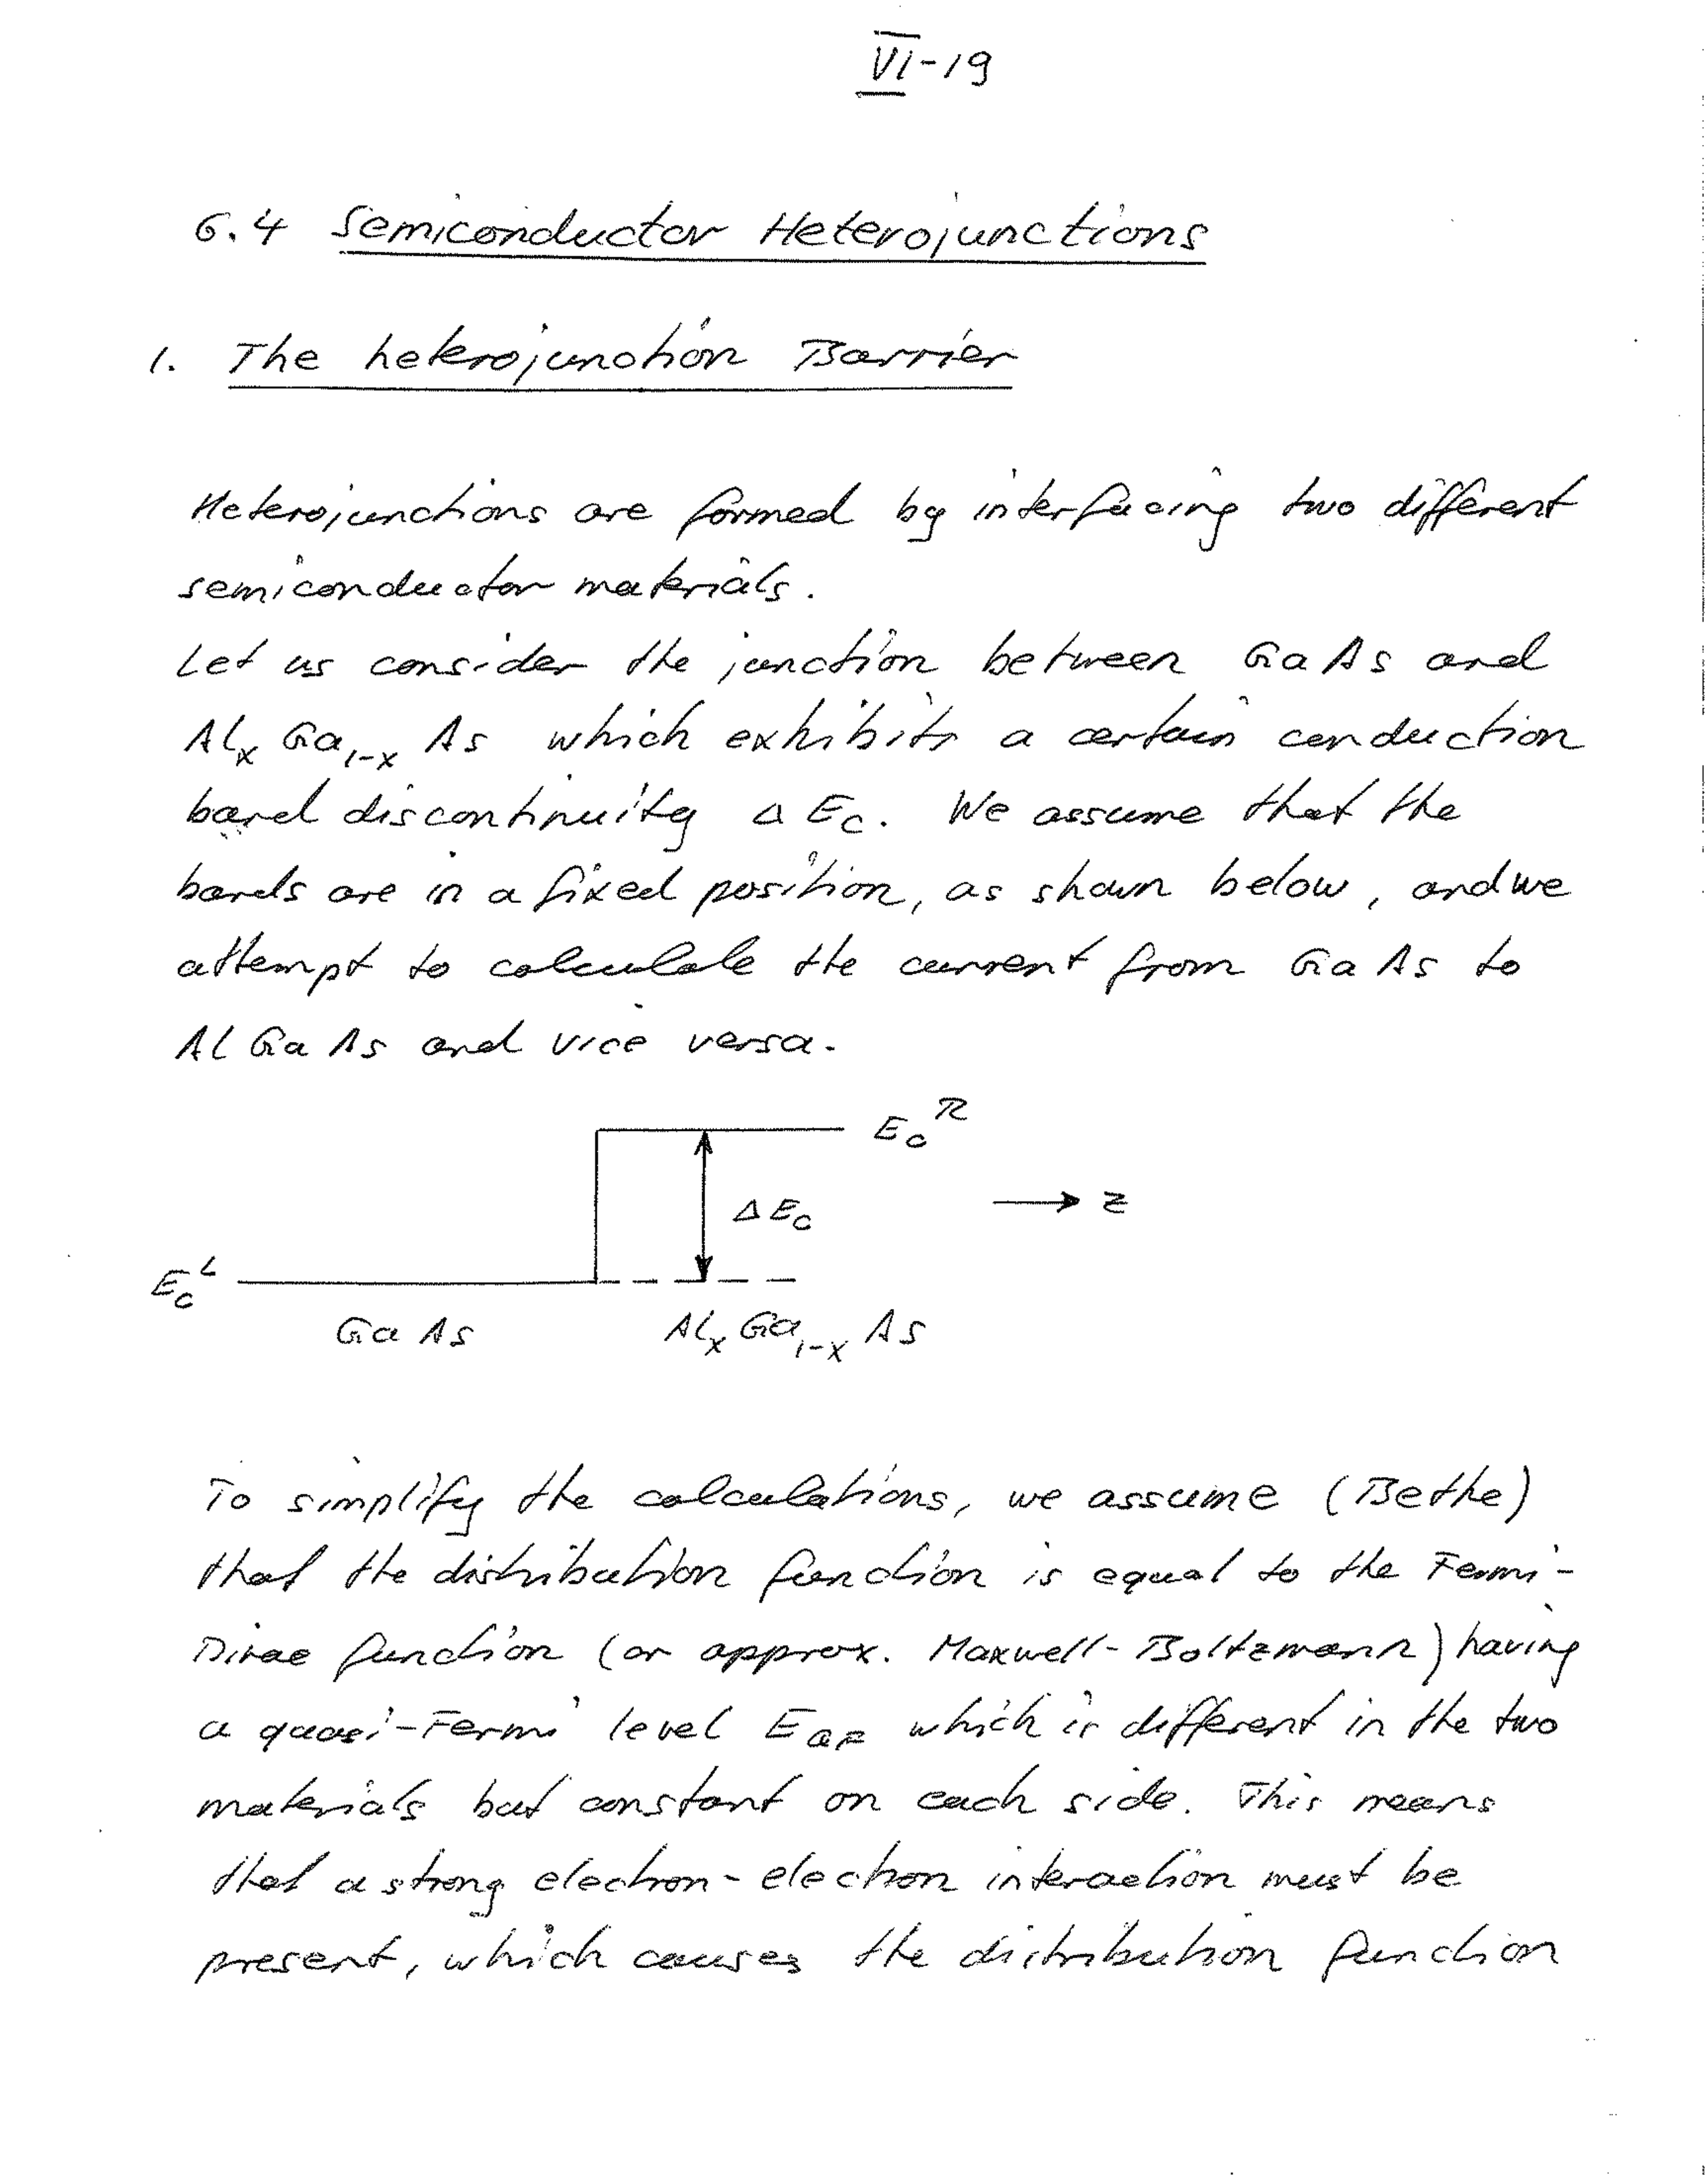 VI-19
6.4 Semiconductor Heterojunctions
1. The heterojunction Barrier
Heterojunctions are formed by interfacing two different
semiconductor materials.
Let us consider the junction between GaAs and
AlₓGa₁₋ₓAs which exhibits a certain conduction
band discontinuity ΔE_C. We assume that the
bands are in a fixed position, as shown below, and we
attempt to calculate the current from GaAs to
AlGaAs and vice versa.
E_C^R
ΔE_C
→ z
E_C^L
GaAs AlₓGa₁₋ₓAs
To simplify the calculations, we assume (Bethe)
that the distribution function is equal to the Fermi-
Dirac function (or approx. Maxwell-Boltzmann) having
a quasi-Fermi level E_QF which is different in the two
materials but constant on each side. This means
that a strong electron-electron interaction must be
present, which causes the distribution function